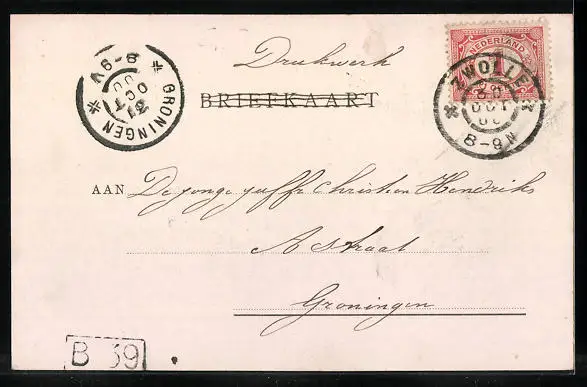 Drukwerk
BRIEFKAART
NEDERLAND
1
ZWOLLE
OCT
8-9N
GRONINGEN
31
OCT
00
8-9V
AAN De jonge juffr Christien Hendriks
A straat
Groningen
B 39